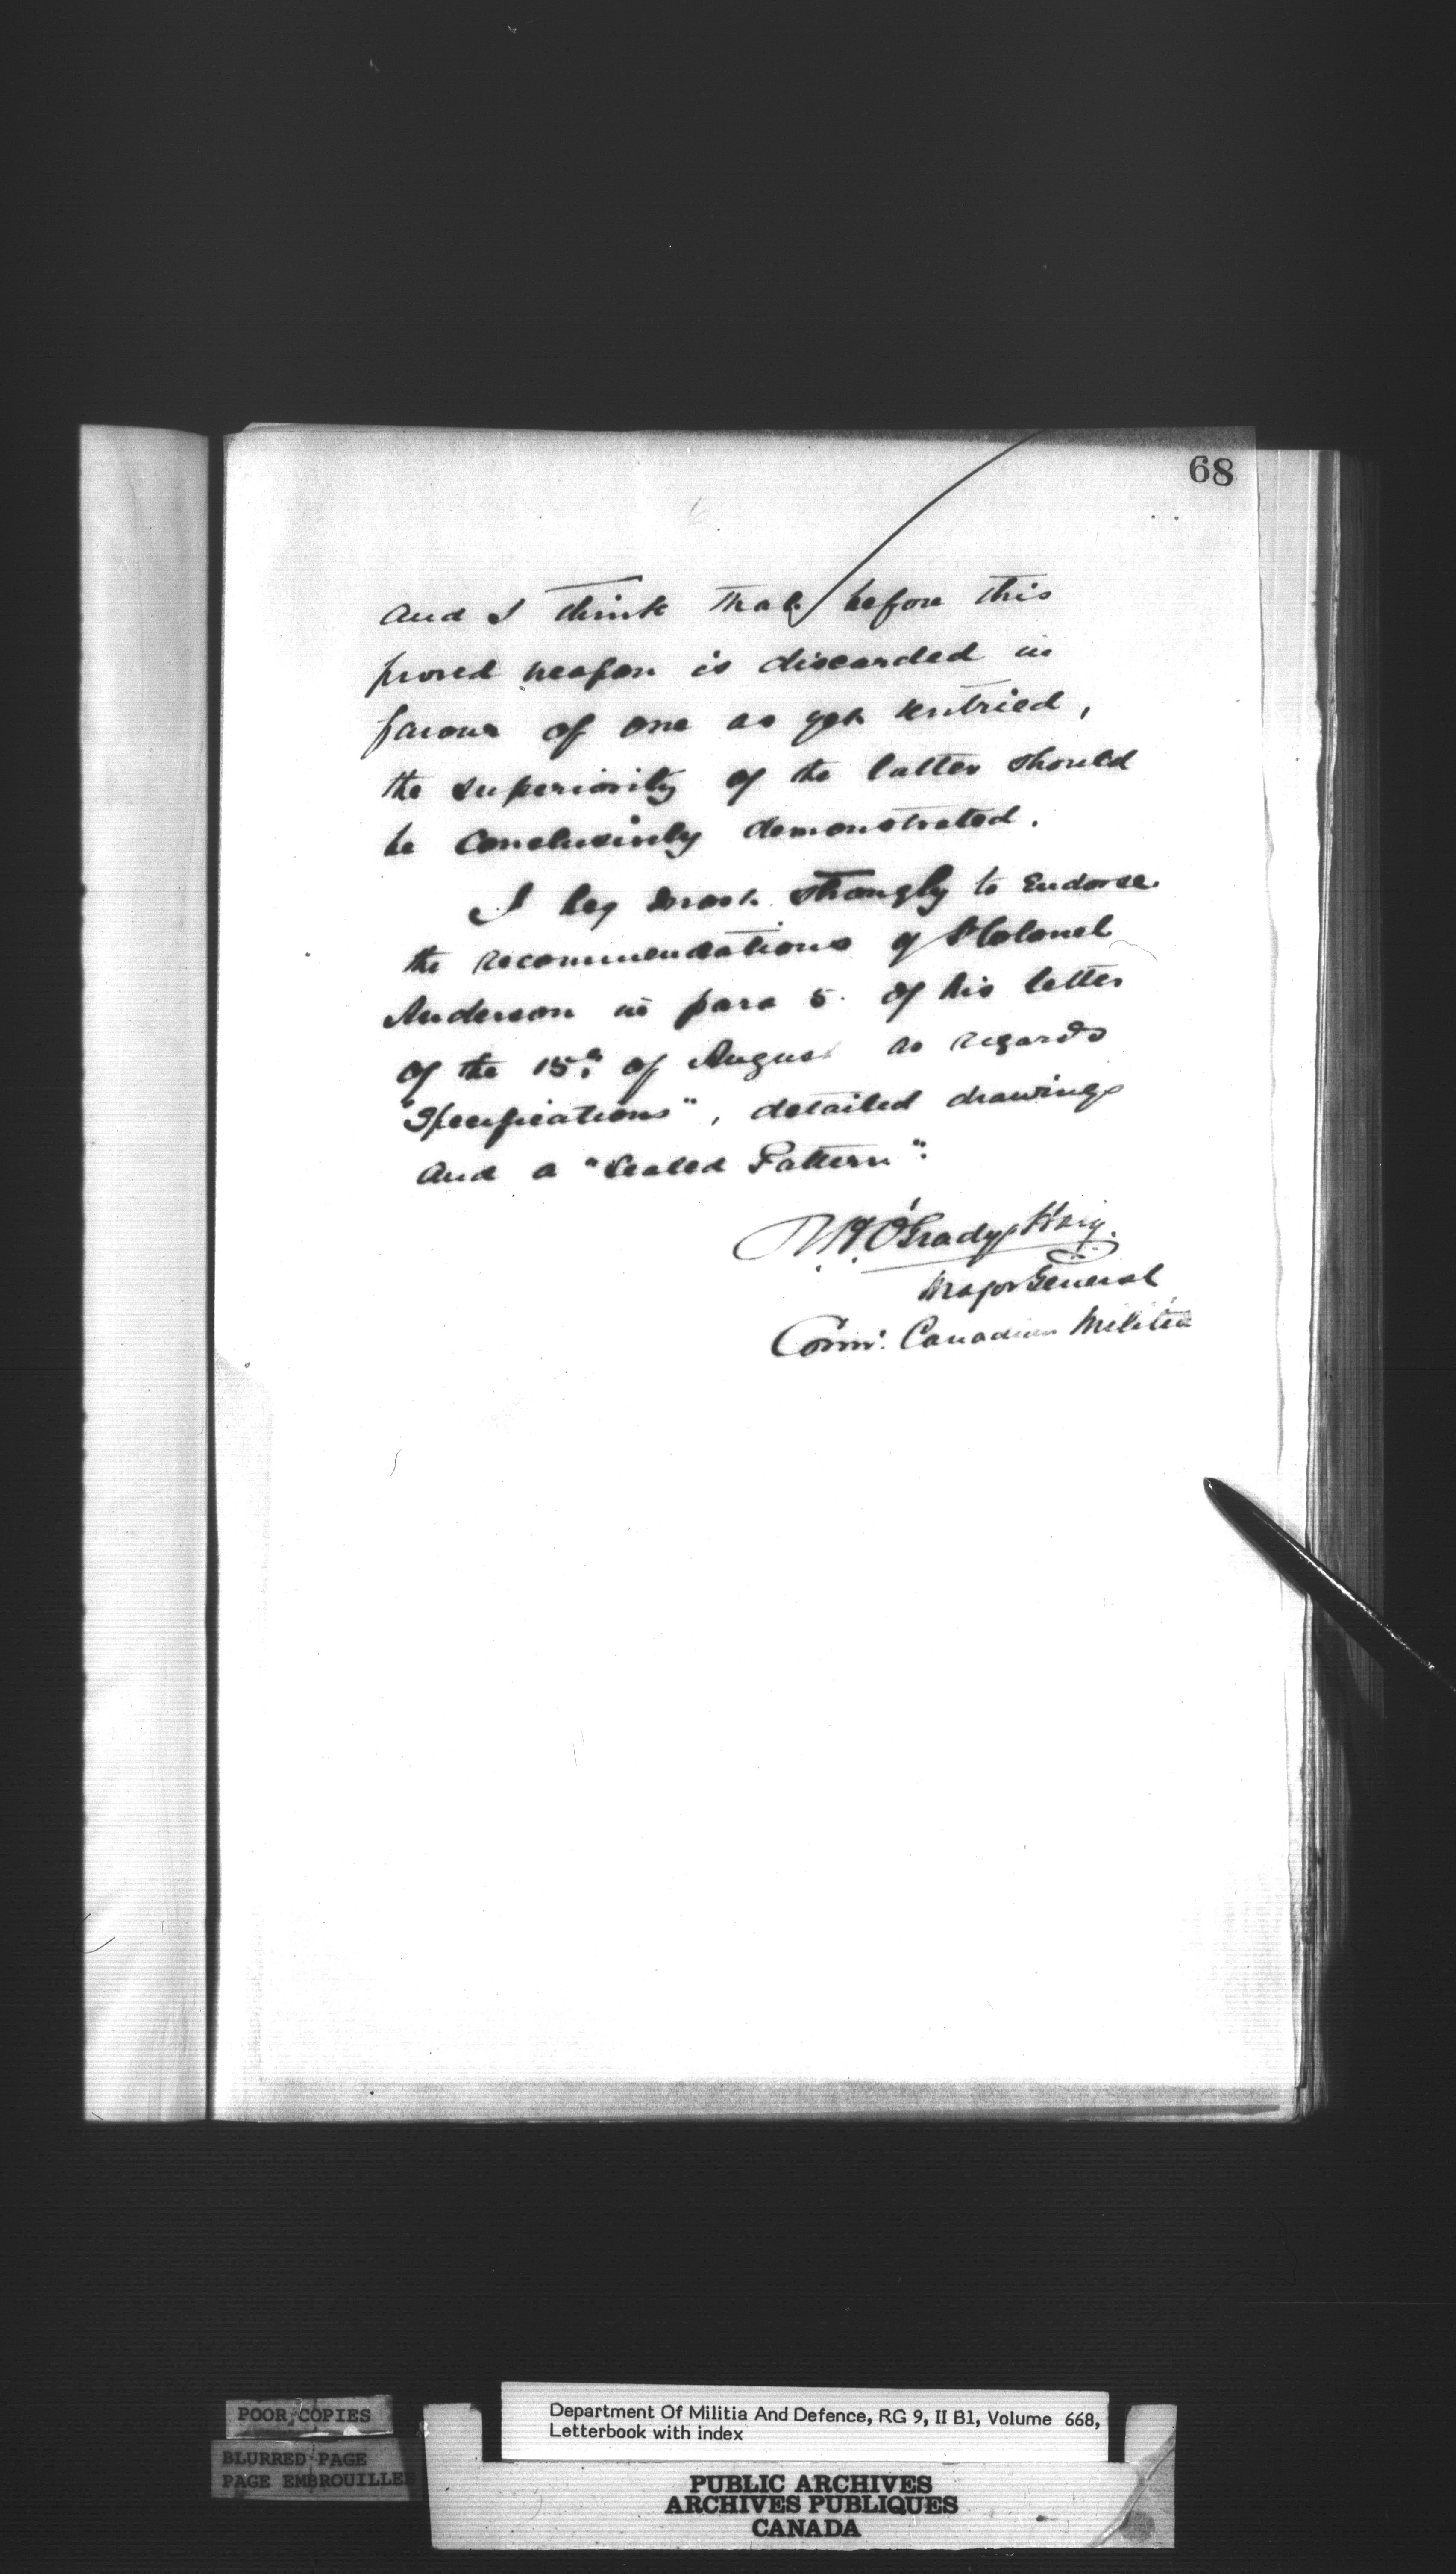 68
and I think that before this
proved weapon is discarded in
favour of one as yet untried,
the superiority of the latter should
be conclusively demonstrated.
I beg most strongly to endorse
the recommendations of Lt Colonel
Anderson in para 5. of his letter
of the 15th of August as regards
"Specifications", detailed drawings
and a "Sealed Pattern".
O'Grady Haly.
Major General
Comm. Canadian Militia
POOR COPIES
BLURRED PAGE
PAGE EMBROUILLEE
Department Of Militia And Defence, RG 9, II B1, Volume 668,
Letterbook with index
PUBLIC ARCHIVES
ARCHIVES PUBLIQUES
CANADA